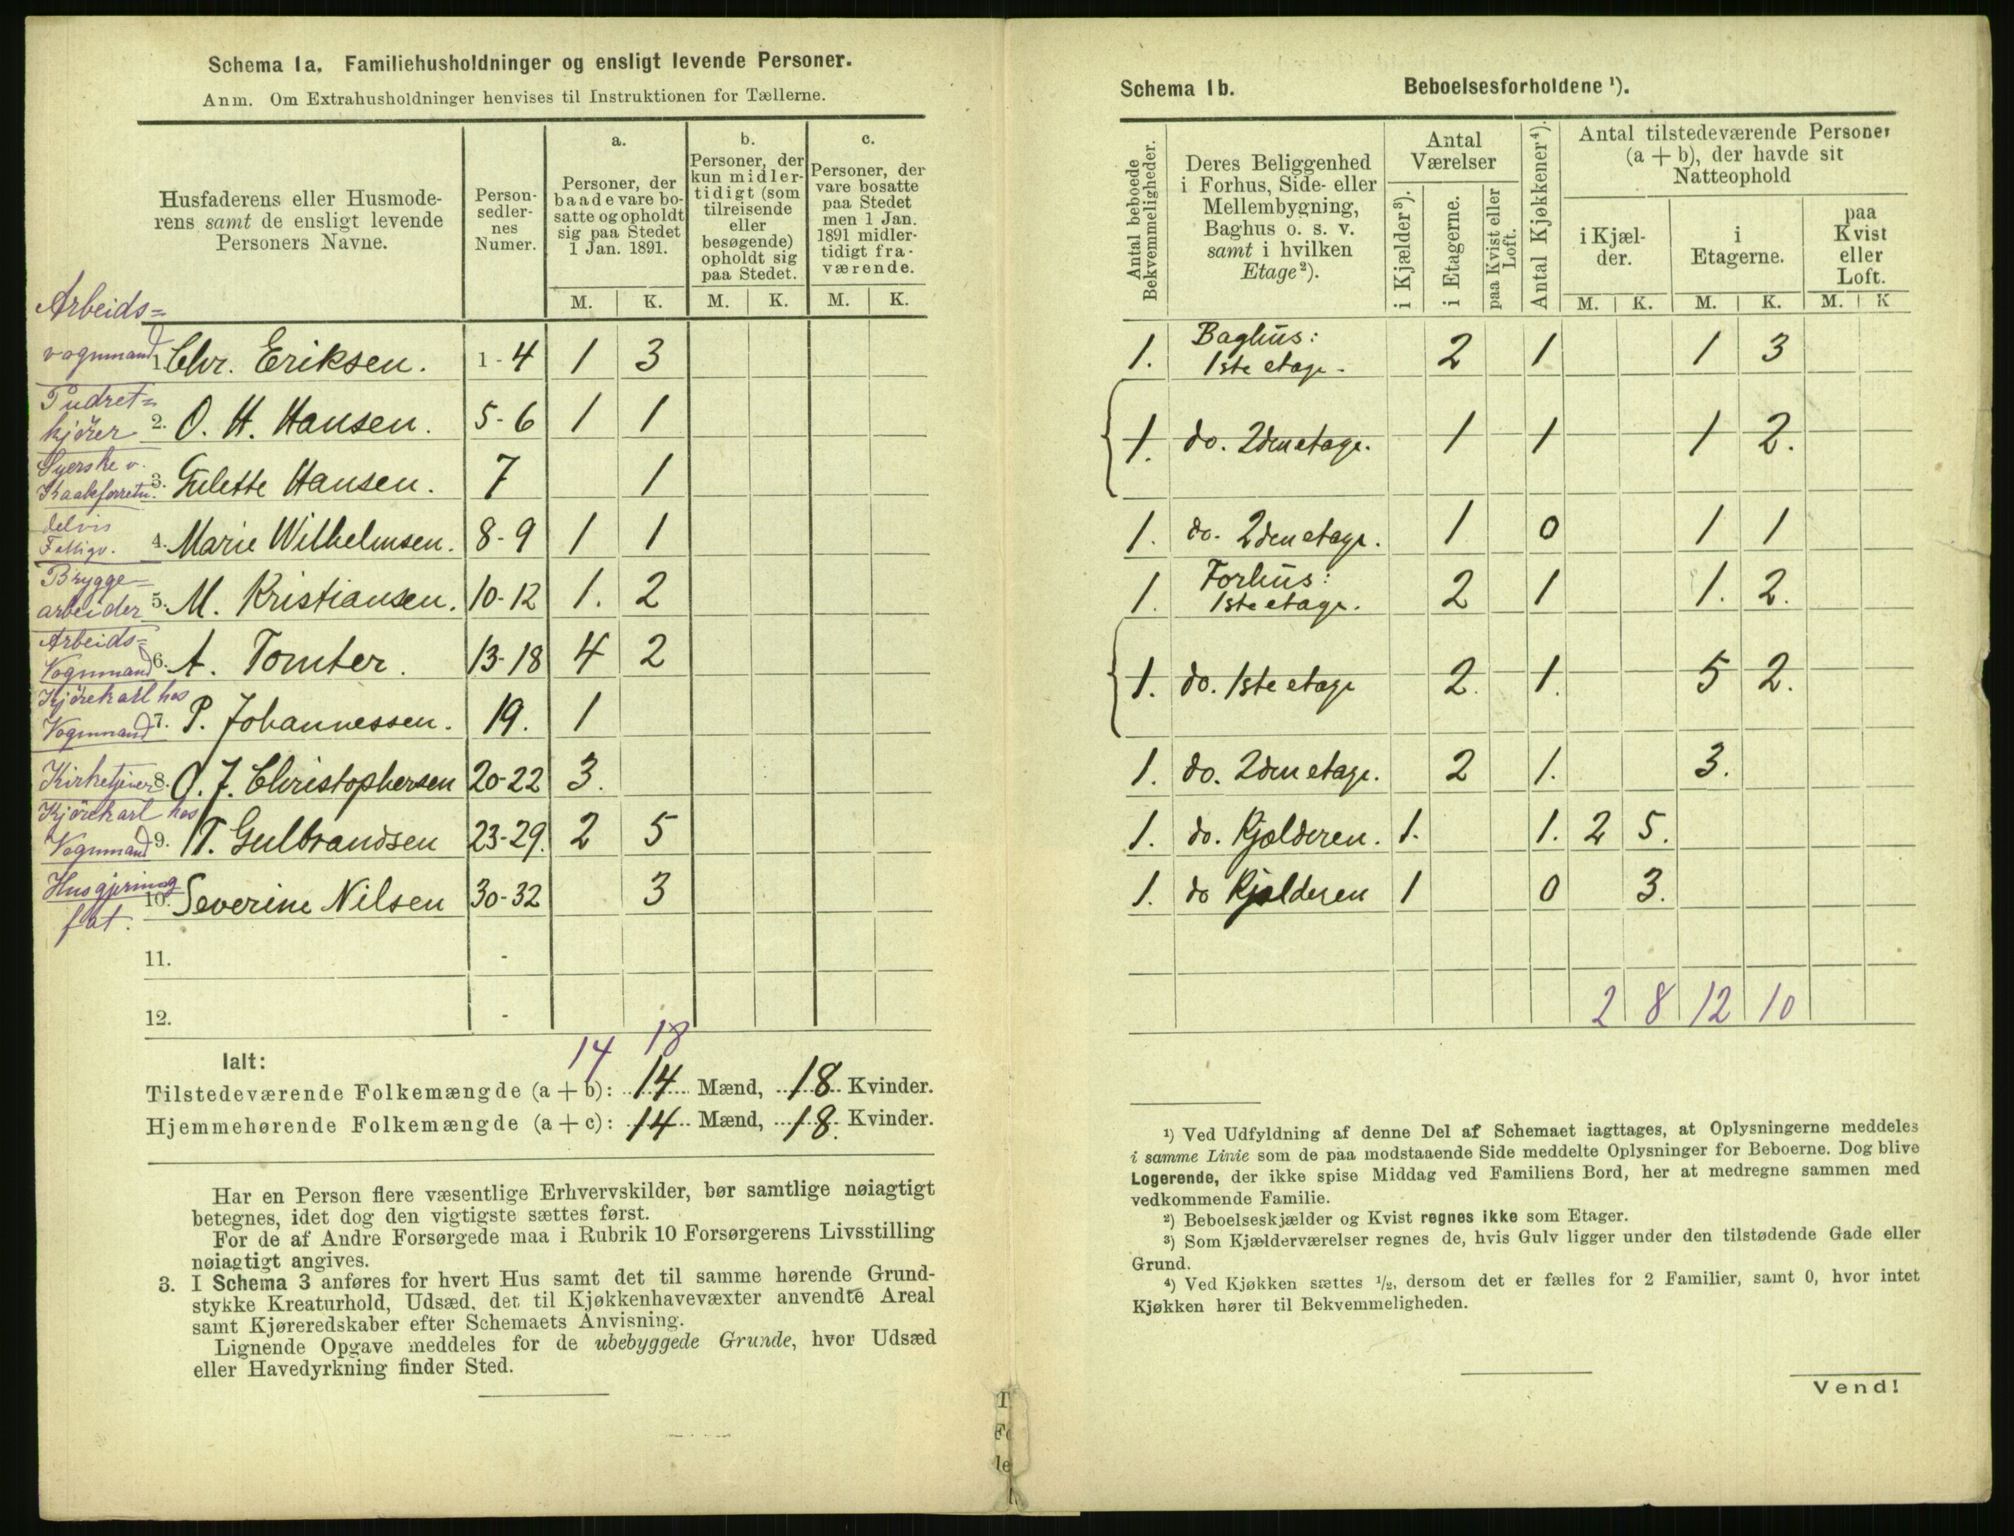 Schema 1a. Familiehusholdninger og ensligt levende Personer.
Anm. Om Extrahusholdninger henvises til Instruktionen for Tællerne.
Husfaderens eller Husmode-
rens samt de ensligt levende
Personers Navne.
Person-
sedler-
nes
Numer.
a.
Personer, der
baade vare bo-
satte og opholdt
sig paa Stedet
1 Jan. 1891.
b.
Personer, der
kun midler-
tidigt (som
tilreisende
eller
besøgende)
opholdt sig
paa Stedet.
c.
Personer, der
vare bosatte
paa Stedet
men 1 Jan.
1891 midler-
tidigt fra-
værende.
M. K. M. K. M. K.
Arbeids=
vognmand 1. Chr. Eriksen. 1-4 1 3
Pudret=
kjörer 2. O. H. Hansen. 5-6 1 1
Syerske v.
3. Gulette Hansen. 7 1
delvis
Fattigv. 4. Marie Wilhelmsen. 8-9 1 1
Brygge=
arbeider 5. M. Kristiansen. 10-12 1. 2
Arbeids=
Vognmand 6. A. Tomter. 13-18 4 2
Kjörekarl hos
Vognmand 7. P. Johannessen. 19. 1
Kirketjener 8. O. J. Christophersen 20-22 3.
Kjörekarl hos
Vognmand 9. T. Gulbrandsen 23-29. 2 5
Husgjerning
10. Severine Nilsen 30-32 3
fat.
11. -
12. -
14 18
Ialt:
Tilstedeværende Folkemængde (a + b): 14 Mænd, 18 Kvinder.
Hjemmehørende Folkemængde (a + c): 14 Mænd, 18. Kvinder.
Har en Person flere væsentlige Erhvervskilder, bør samtlige nøiagtigt
betegnes, idet dog den vigtigste sættes først.
For de af Andre Forsørgede maa i Rubrik 10 Forsørgerens Livsstilling
nøiagtigt angives.
3. I Schema 3 anføres for hvert Hus samt det til samme hørende Grund-
stykke Kreaturhold, Udsæd, det til Kjøkkenhavevæxter anvendte Areal
samt Kjøreredskaber efter Schemaets Anvisning.
Lignende Opgave meddeles for de ubebyggede Grunde, hvor Udsæd
eller Havedyrkning finder Sted.
Schema 1b. Beboelsesforholdene ¹).
Antal beboede
Bekvemmeligheder.
Deres Beliggenhed
i Forhus, Side- eller
Mellembygning,
Baghus o. s. v.
samt i hvilken
Etage ²).
Antal
Værelser
i Kjælder ³).
i Etagerne.
paa Kvist eller
Loft.
Antal Kjøkkener ⁴).
Antal tilstedeværende Personer
(a + b), der havde sit
Natteophold
i Kjæl-
der.
i
Etagerne.
paa
Kvist
eller
Loft.
M. K. M. K. M. K
1. Baghus:
1ste etage. 2 1 1 3
1. do. 2den etage. 1 1 1 2.
1. do. 2den etage. 1 0 1 1
1. Forhus:
1ste etage. 2 1 1. 2.
1. do. 1ste etage 2. 1. 5 2.
1. do. 2den etage. 2 1. 3.
1. do. Kjælderen. 1. 1. 2 5.
1. do Kjælderen 1 0 3.
2 8 12 10
¹) Ved Udfyldning af denne Del af Schemaet iagttages, at Oplysningerne meddeles
i samme Linie som de paa modstaaende Side meddelte Oplysninger for Beboerne. Dog blive
Logerende, der ikke spise Middag ved Familiens Bord, her at medregne sammen med
vedkommende Familie.
²) Beboelseskjælder og Kvist regnes ikke som Etager.
³) Som Kjælderværelser regnes de, hvis Gulv ligger under den tilstødende Gade eller
Grund.
⁴) Ved Kjøkken sættes ¹/₂, dersom det er fælles for 2 Familier, samt 0, hvor intet
Kjøkken hører til Bekvemmeligheden.
Vend!